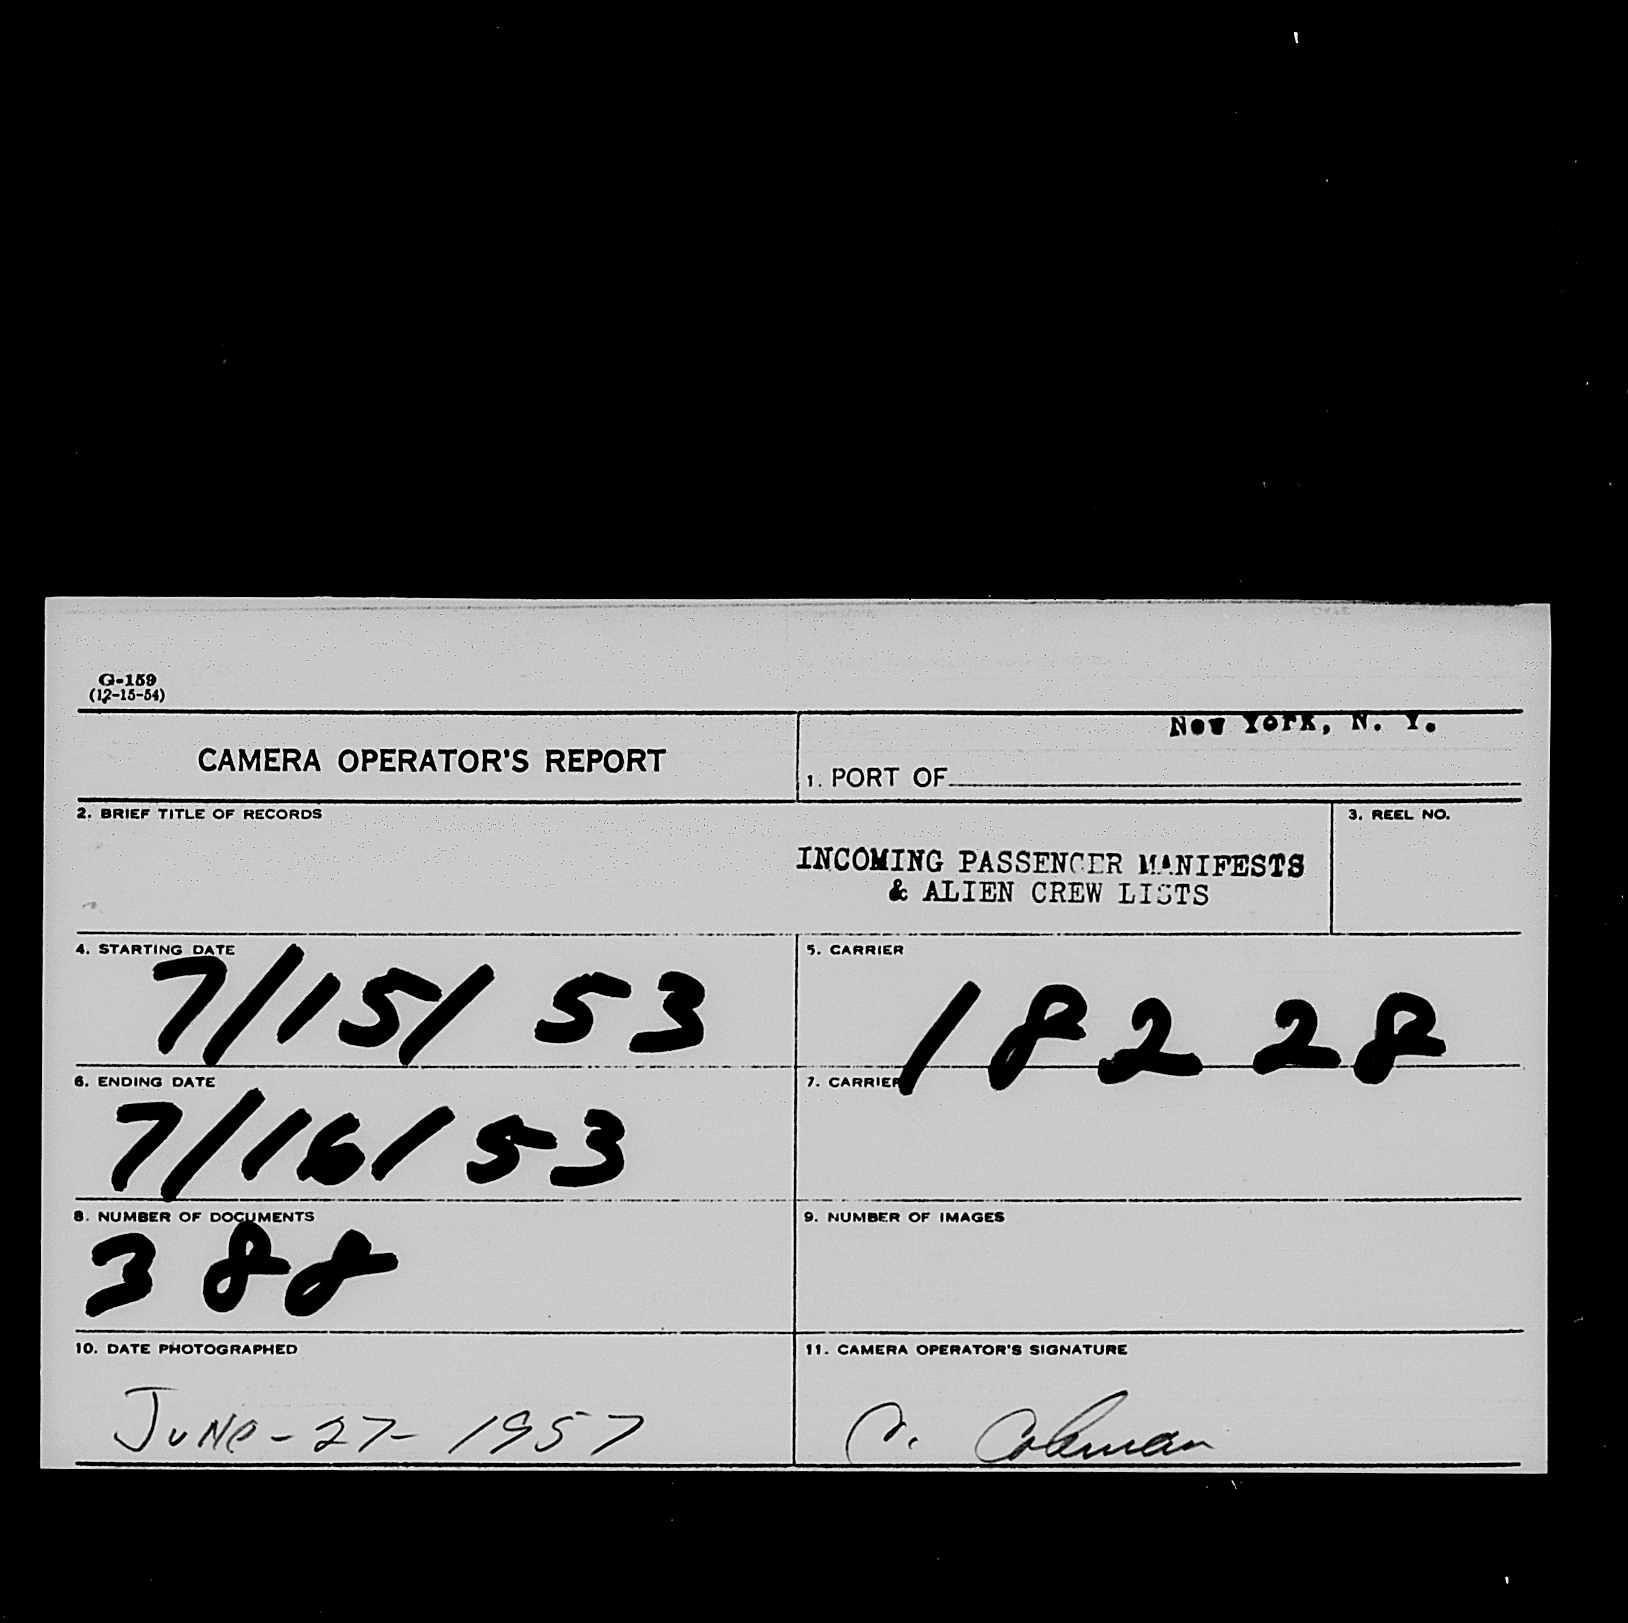 G-159
(12-15-54)
CAMERA OPERATOR'S REPORT
New York, N. Y.
1. PORT OF
2. BRIEF TITLE OF RECORDS
INCOMING PASSENGER MANIFESTS
& ALIEN CREW LISTS
3. REEL NO.
4. STARTING DATE
7/15/53
5. CARRIER
18228
6. ENDING DATE
7/16/53
7. CARRIER
8. NUMBER OF DOCUMENTS
388
9. NUMBER OF IMAGES
10. DATE PHOTOGRAPHED
June-27-1957
11. CAMERA OPERATOR'S SIGNATURE
Coleman